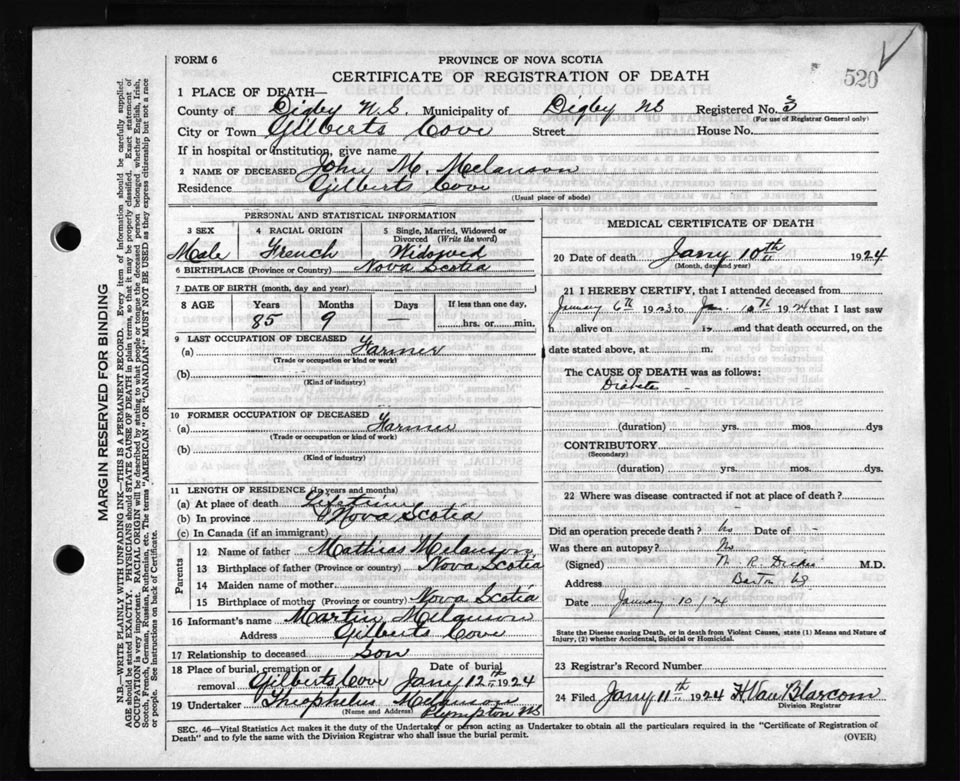 FORM 6
PROVINCE OF NOVA SCOTIA
CERTIFICATE OF REGISTRATION OF DEATH
520
1 PLACE OF DEATH—
County of Digby N.S. Municipality of Digby NS Registered No. 3
(For use of Registrar General only)
City or Town Gilberts Cove Street House No.
If in hospital or institution, give name
2 NAME OF DECEASED John M. Melanson
Residence Gilberts Cove
(Usual place of abode)
PERSONAL AND STATISTICAL INFORMATION
3 SEX 4 RACIAL ORIGIN 5 Single, Married, Widowed or Divorced (Write the word)
Male French Widowed
6 BIRTHPLACE (Province or Country) Nova Scotia
7 DATE OF BIRTH (month, day and year)
8 AGE Years Months Days If less than one day,
85 9 — hrs. or min.
9 LAST OCCUPATION OF DECEASED
(a) Farmer
(Trade or occupation or kind of work)
(b)
(Kind of industry)
10 FORMER OCCUPATION OF DECEASED
(a) Farmer
(Trade or occupation or kind of work)
(b)
(Kind of industry)
11 LENGTH OF RESIDENCE (In years and months)
(a) At place of death Lifetime
(b) In province Nova Scotia
(c) In Canada (if an immigrant)
Parents
12 Name of father Mathias Melanson
13 Birthplace of father (Province or country) Nova Scotia
14 Maiden name of mother
15 Birthplace of mother (Province or country) Nova Scotia
16 Informant's name Martin Melanson
Address Gilberts Cove
17 Relationship to deceased Son
18 Place of burial, cremation or removal Gilberts Cove Date of burial Jany 12th 1924
19 Undertaker Theophelus Melanson
(Name and Address) Plympton NS
MEDICAL CERTIFICATE OF DEATH
20 Date of death Jany 10th 1924
(Month, day and year)
21 I HEREBY CERTIFY, that I attended deceased from
January 6th 1923 to Jan 10th 1924 that I last saw
h alive on 1 and that death occurred, on the
date stated above, at m.
The CAUSE OF DEATH was as follows:
Diabete
(duration) yrs. mos. dys
CONTRIBUTORY
(Secondary)
(duration) yrs. mos. dys
22 Where was disease contracted if not at place of death?
Did an operation precede death? No Date of -
Was there an autopsy? No
(Signed) M.D.
Address Barton NS
Date January 10/24
State the Disease causing Death, or in death from Violent Causes, state (1) Means and Nature of
Injury, (2) whether Accidental, Suicidal or Homicidal.
23 Registrar's Record Number
24 Filed Jany 11th 1924 H Van Blarcom
Division Registrar
SEC. 46—Vital Statistics Act makes it the duty of the Undertaker or person acting as Undertaker to obtain all the particulars required in the "Certificate of Registration of
Death" and to fyle the same with the Division Registrar who shall issue the burial permit.
(OVER)
MARGIN RESERVED FOR BINDING
N.B.—WRITE PLAINLY WITH UNFADING INK—THIS IS A PERMANENT RECORD. Every item of information should be carefully supplied.
AGE should be stated EXACTLY. PHYSICIANS should STATE CAUSE OF DEATH in plain terms, so that it may be properly classified. Exact statement of
OCCUPATION is very important. RACIAL ORIGIN will be described by stating to what people or tongue the deceased person belonged whether English, Irish,
Scotch, French, German, Russian, Ruthenian, etc. The terms "AMERICAN" OR "CANADIAN" MUST NOT BE USED as they express citizenship but not a race
or people. See instructions on back of Certificate.